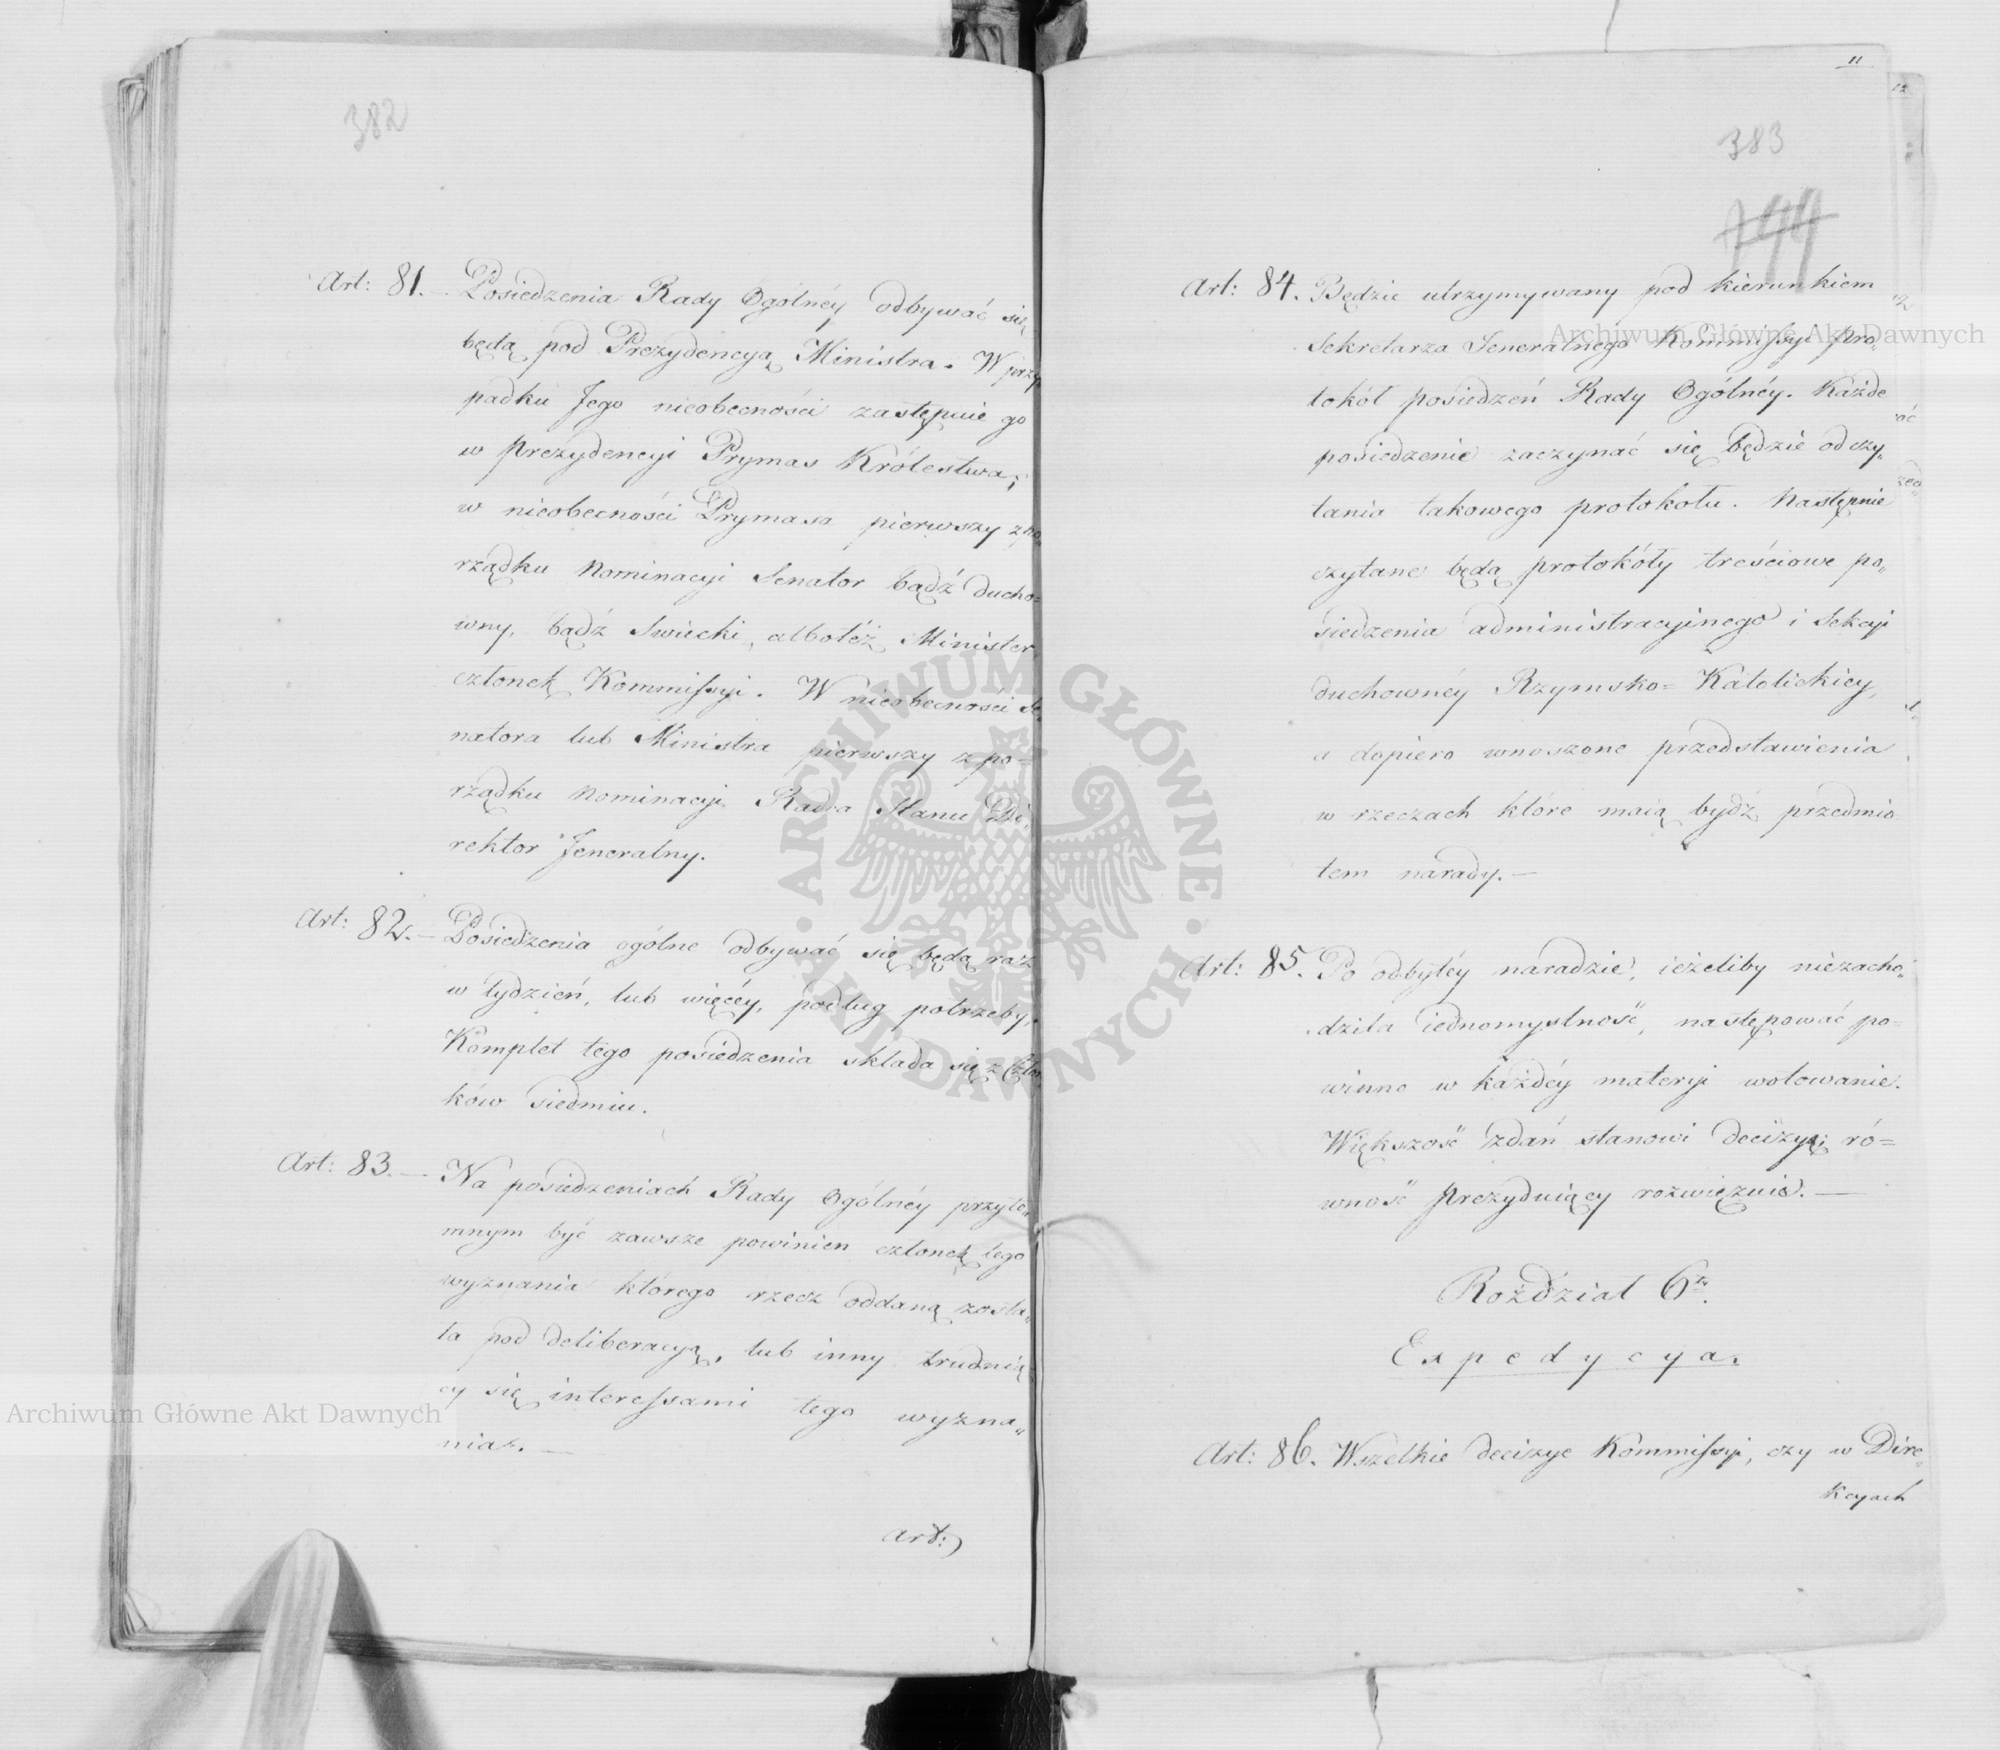 382
Art: 81. — Posiedzenia Rady Ogólnéy odbywać się
będą pod Prezydencyą Ministra. W przy
padku Jego nieobecności zastępuie go
w prezydencyi Prymas Królestwa;
w nieobecności Prymasa pierwszy z po„
rządku Nominacyi Senator bądź ducho=
wny, bądź Swiecki, alboteż Minister,
członek Kommissyi. W nieobecności Se„
natora lub Ministra pierwszy z po=
rządku Nominacyi Radca Stanu Dy„
rektor Jeneralny.
Art: 82. — Posiedzenia ogólne odbywać się będą raz
w tydzień, lub więcéy, podług potrzeby.
Komplet tego posiedzenia składa się z Człon
ków siedmiu.
Art: 83. — Na posiedzeniach Rady Ogólnéy przyto„
mnym być zawsze powinien członek tego
wyznania którego rzecz oddaną zosta„
ła pod deliberacyą, lub inny trudnią
cy się interessami tego wyzna„
nia. —
Art:
11
12
383
199
Art: 84. Będzie utrzymywany pod kierunkiem
Sekretarza Jeneralnego Kommissyi pro„
tokół posiedzeń Rady Ogólnéy. Każde
posiedzenie zaczynać się będzie od czy„
tania takowego protokołu. Następnie
czytane będą protokóły treściowe po„
siedzenia administracyinego i Sekcyi
duchownéy Rzymsko=Katolickiey,
a dopiero wnoszone przedstawienia
w rzeczach które maią bydź przedmio
tem narady. —
Art: 85. Po odbytéy naradzie, ieżeliby niezacho„
dziła iednomyślność, następować po=
winno w każdéy materyi wotowanie.
Większość zdań stanowi decizyą; ró=
wność prezyduiący rozwięzuie. —
Rozdział 6ty.
Expedycya.
Art: 86. Wszelkie decizye Kommissyi, czy w Dire„
kcyach
Archiwum Główne Akt Dawnych
Archiwum Główne Akt Dawnych
ARCHIWUM GŁÓWNE · AKT DAWNYCH ·